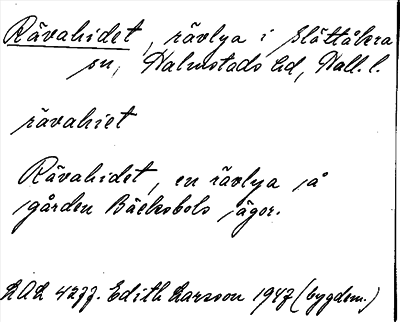 Rävahidet, rävlya i Slättåkra
sn, Halmstads hd, Hall. l.
rävahiet
Rävahidet, en rävlya på
gården Bäcksbols ägor.
LAL 4277. Edith Larsson 1947 (bygdem.)